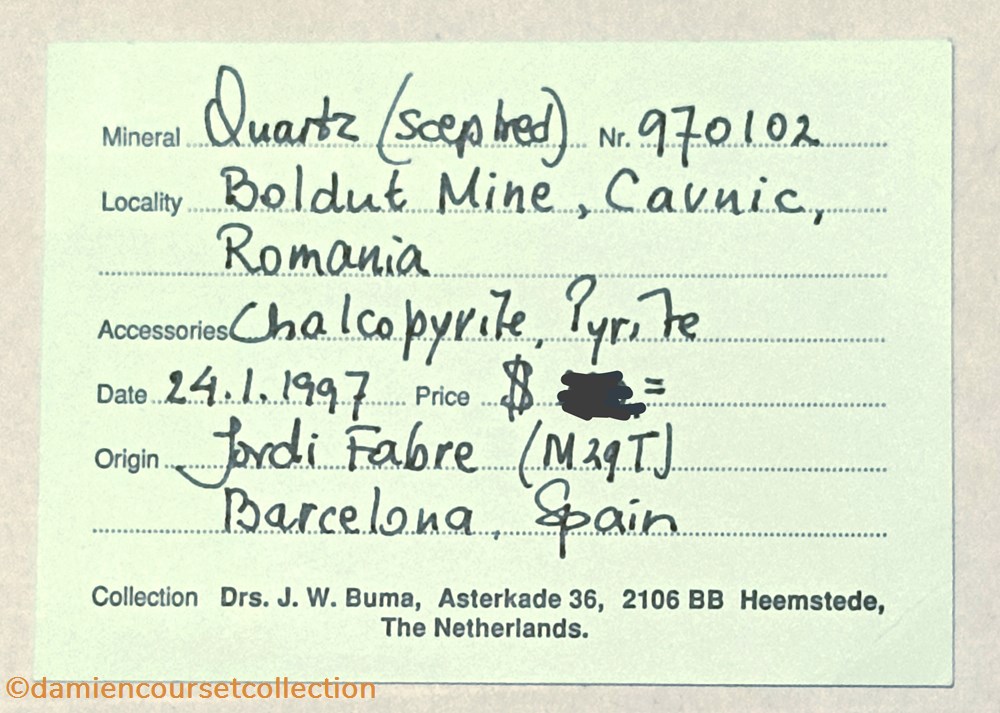 Mineral Quartz (sceptred) Nr. 970102
Locality Boldut Mine, Cavnic,
Romania
Accessories Chalcopyrite, Pyrite
Date 24.1.1997 Price $ =
Origin Jordi Fabre (M29T)
Barcelona, Spain
Collection Drs. J. W. Buma, Asterkade 36, 2106 BB Heemstede,
The Netherlands.
©damiencoursetcollection